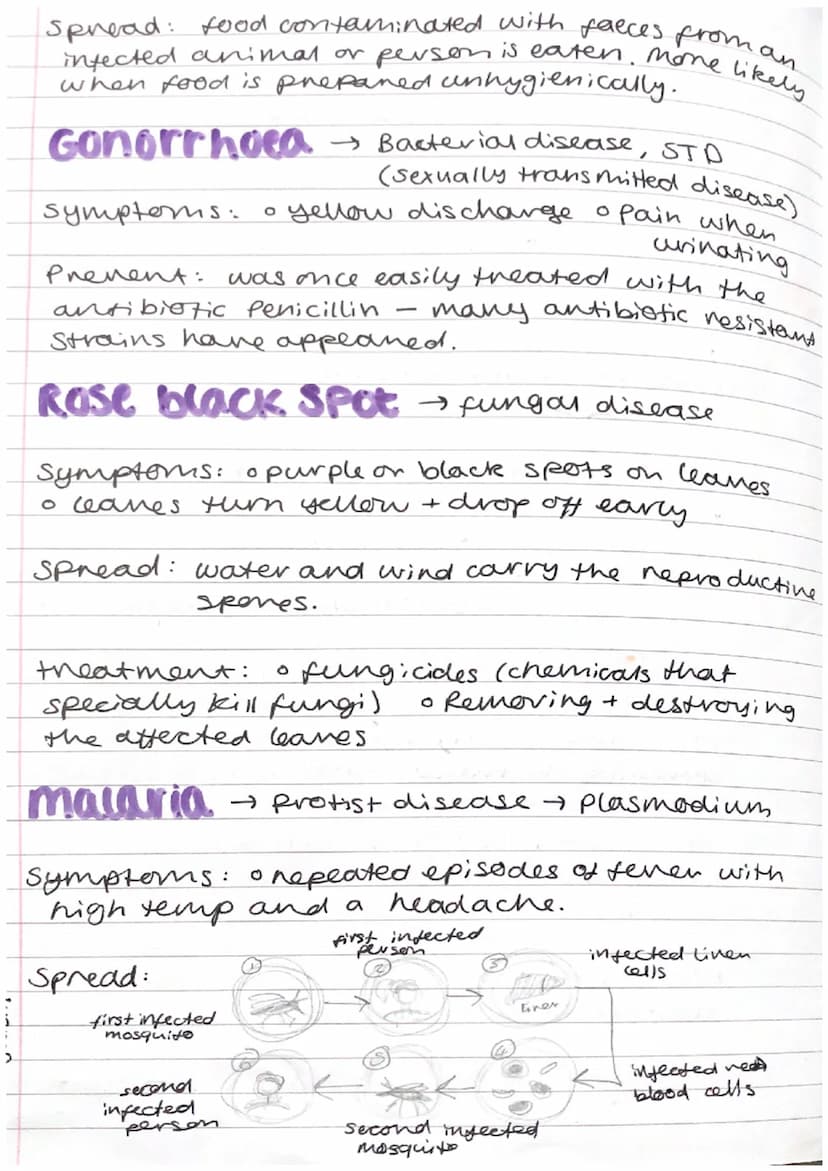 Spread: food contaminated with faeces from an
infected animal or person is eaten. More likely
when food is prepared unhygienically.
Gonorrhoea → Bacterial disease, STD
(sexually transmitted disease)
Symptoms: o yellow discharge o Pain when
urinating
Prevent: was once easily treated with the
antibiotic Penicillin – many antibiotic resistant
strains have appeared.
Rose black spot → fungal disease
Symptoms: o purple or black spots on leaves
o leaves turn yellow + drop off early
Spread: water and wind carry the reproductive
spores.
treatment: o fungicides (chemicals that
specially kill fungi) o Removing + destroying
the affected leaves
malaria → Protist disease → Plasmodium
Symptoms: o repeated episodes of fever with
high temp and a headache.
Spread:
first infected
mosquito
①
first infected
person
②
③
liver
infected liver
cells
④
infected red
blood cells
⑤
second infected
mosquito
⑥
second
infected
person